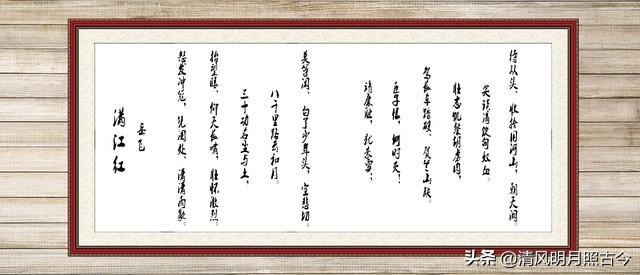 满江红
岳飞
怒发冲冠，凭阑处，潇潇雨歇。
抬望眼，仰天长啸，壮怀激烈。
三十功名尘与土，
八千里路云和月。
莫等闲，白了少年头，空悲切。
靖康耻，犹未雪；
臣子恨，何时灭？
驾长车踏破，贺兰山缺。
壮志饥餐胡虏肉，
笑谈渴饮匈奴血。
待从头，收拾旧河山，朝天阙。
头条 @清风明月照古今